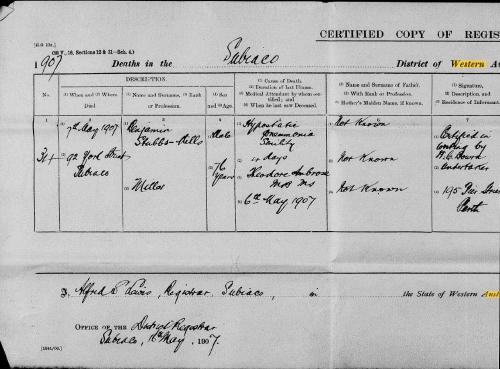 CERTIFIED COPY OF REGIS
1907 Deaths in the Subiaco District of Western Au
DESCRIPTION.
No. (1) When and (2) Where Died (1) Name and Surname. (2) Rank or Profession. (1) Sex and (2) Age. (1) Cause of Death. (2) Duration of last Illness. (3) Medical Attendant by whom certified; and (4) When he last saw Deceased. (1) Name and Surname of Father. (2) With Rank or Profession. (3) Mother's Maiden Name, if known. (1) Signature, (2) Description, and (3) Residence of Informant
1 2 3 4 5 6 7
(1) 7th May 1907 (1) Benjamin Stubbs-Mills (1) Male (1) Hypostatic Pneumonia Senility (1) Not Known (1) Certified in writing by
34 (2) 92 York Street Subiaco (2) Miller (2) 76 years (2) 4 days (2) Not Known (2) Undertaker
(3) Theodore Ambrose (3) Not Known (3) 195 Pier Street Perth
(4) 6th May 1907
I, Alfred Lewis, Registrar, Subiaco, in the State of Western Aust
OFFICE OF THE District Registrar
Subiaco, May, 1907.